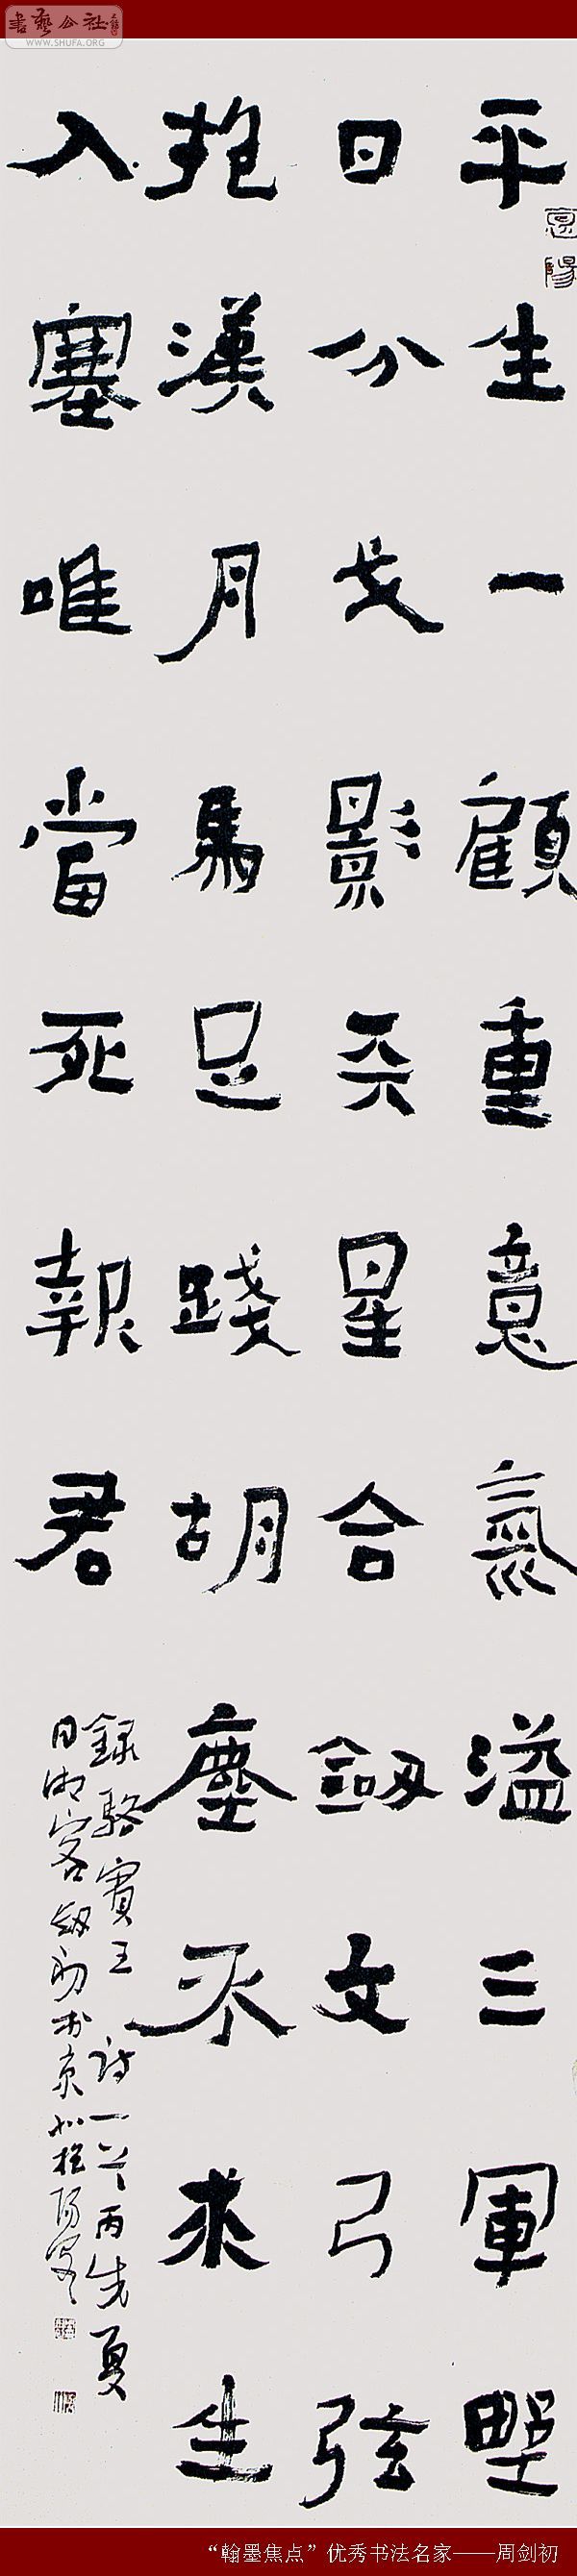 書藝公社
WWW.SHUFA.ORG
平生一顧重意氣溢三軍野
日分戈影天星合劒文弓弦
抱漢月馬足踐胡塵不求生
入塞唯當死報君
錄駱賓王詩一首丙戌夏
客劒初於京北
“翰墨焦点”优秀书法名家——周剑初